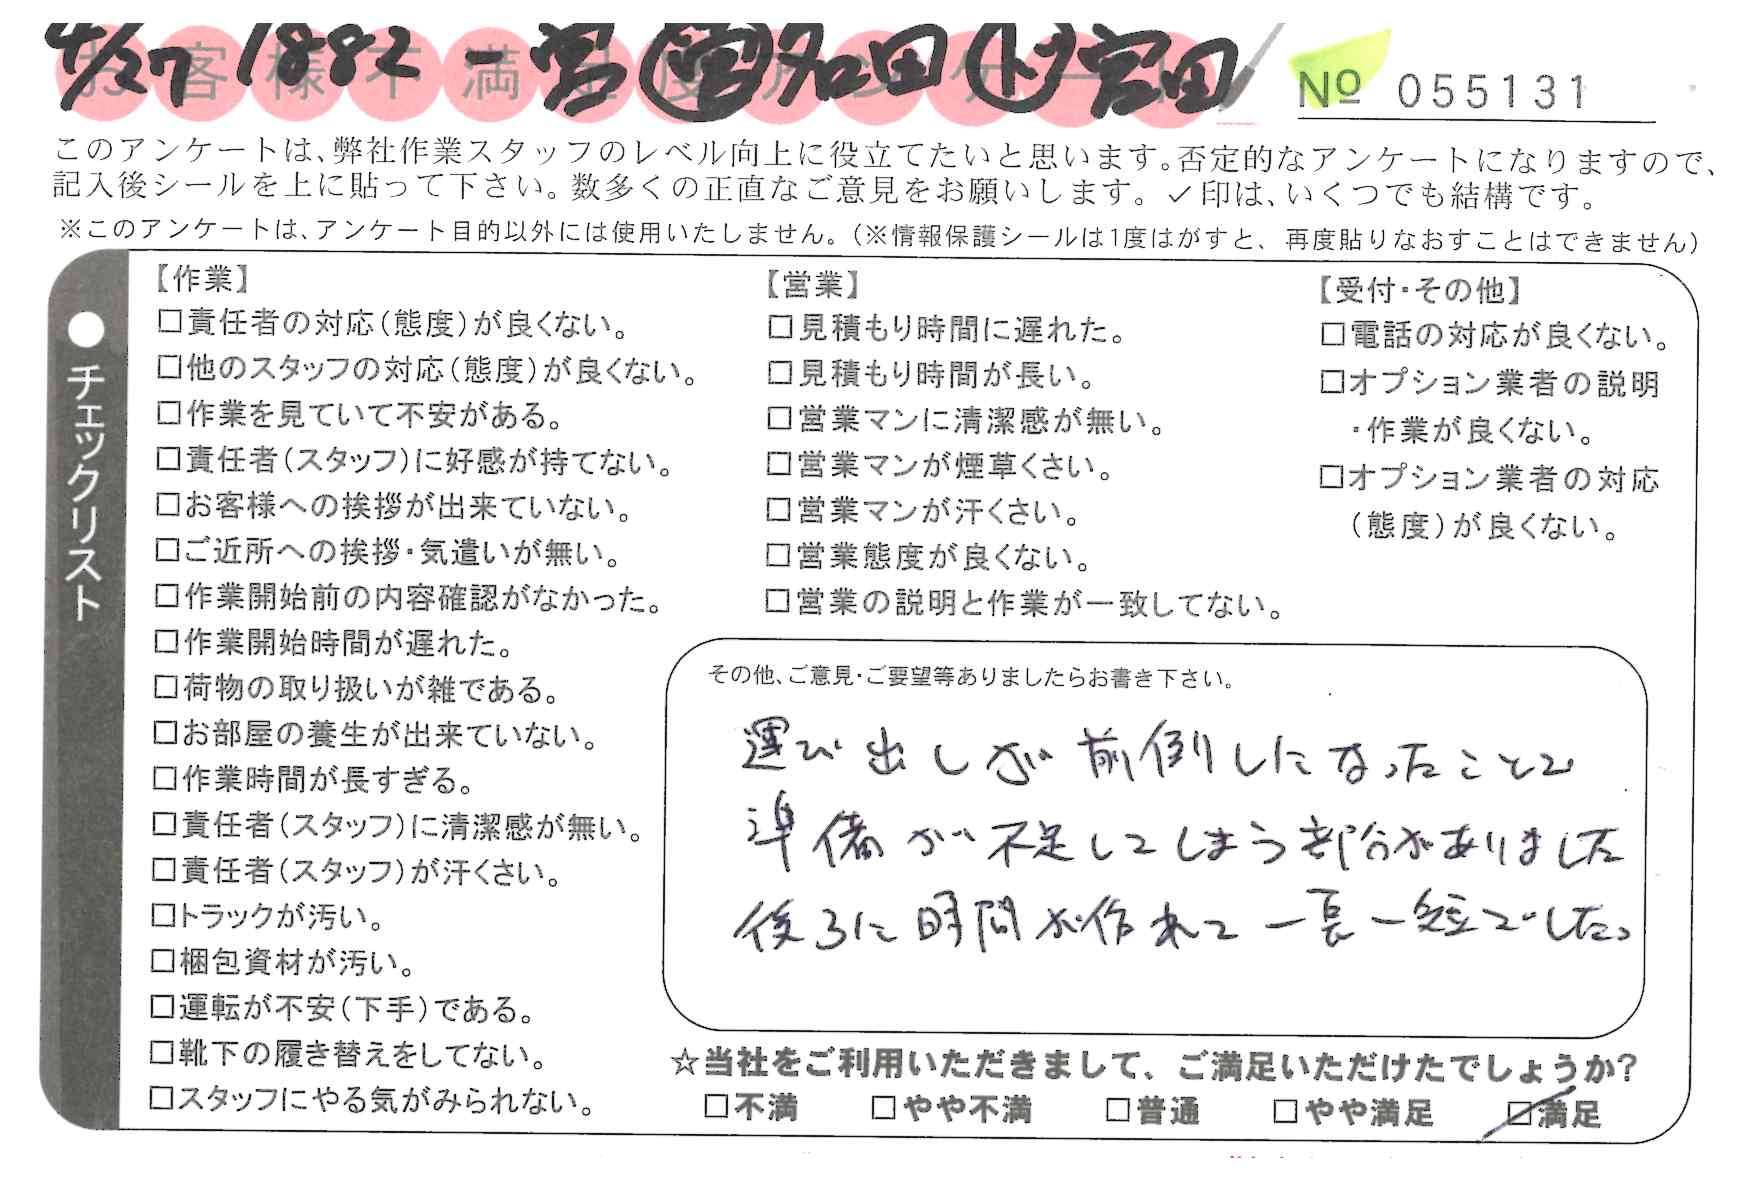 お客様不満足度アンケート
4/27 1882-営 営 名田 ト 宮田
№ 055131
このアンケートは、弊社作業スタッフのレベル向上に役立てたいと思います。否定的なアンケートになりますので、
記入後シールを上に貼って下さい。数多くの正直なご意見をお願いします。✓印は、いくつでも結構です。
※このアンケートは、アンケート目的以外には使用いたしません。(※情報保護シールは1度はがすと、再度貼りなおすことはできません)
●チェックリスト
【作業】
□責任者の対応(態度)が良くない。
□他のスタッフの対応(態度)が良くない。
□作業を見ていて不安がある。
□責任者(スタッフ)に好感が持てない。
□お客様への挨拶が出来ていない。
□ご近所への挨拶・気遣いが無い。
□作業開始前の内容確認がなかった。
□作業開始時間が遅れた。
□荷物の取り扱いが雑である。
□お部屋の養生が出来ていない。
□作業時間が長すぎる。
□責任者(スタッフ)に清潔感が無い。
□責任者(スタッフ)が汗くさい。
□トラックが汚い。
□梱包資材が汚い。
□運転が不安(下手)である。
□靴下の履き替えをしてない。
□スタッフにやる気がみられない。
【営業】
□見積もり時間に遅れた。
□見積もり時間が長い。
□営業マンに清潔感が無い。
□営業マンが煙草くさい。
□営業マンが汗くさい。
□営業態度が良くない。
□営業の説明と作業が一致してない。
【受付・その他】
□電話の対応が良くない。
□オプション業者の説明
・作業が良くない。
□オプション業者の対応
(態度)が良くない。
その他、ご意見・ご要望等ありましたらお書き下さい。
運び出しが前倒しになったことで
準備が不足してしまう部分がありました
後ろに時間が作れて一長一短でした。
☆当社をご利用いただきまして、ご満足いただけたでしょうか?
□不満 □やや不満 □普通 □やや満足 □満足